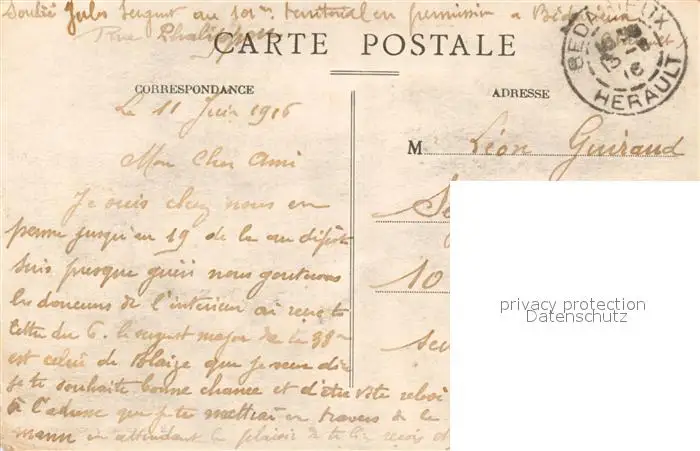 Soulié Jules Sergent au 101me territorial en permission a Bédarieux
Rue
CARTE POSTALE
BEDARIEUX
16
HERAULT
CORRESPONDANCE
ADRESSE
Le 11 Juin 1916
M. Léon Guiraud
Mon Cher Ami
Je suis chez nous en
perme jusqu'au 19 de la au dépôt
suis presque guéri nous goutons
les douceurs de l'intérieur ai reçu ta
10
lettre du 6. le sergent major de la 38me
est celui de Blaize que je veux dire
je te souhaite bonne chance et d'être vite relevé
à l'adresse que je te mettrai en travers de la
mienne en attendant le plaisir de te lire reçois
privacy protection
Datenschutz